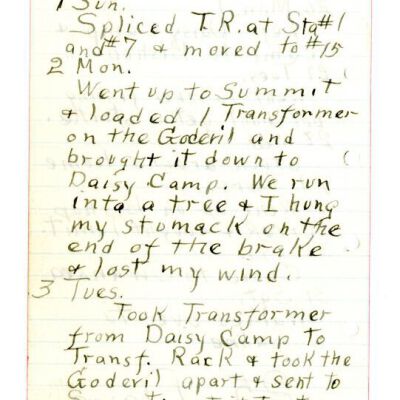 1 Sun.
Spliced T.R. at Sta#1
and #7 & moved to #15
2 Mon.
Went up to Summit
& loaded 1 Transformer
on the Goderil and
brought it down to
Daisy Camp. We run
inta a tree & I hung
my stomack on the
end of the brake
& lost my wind.
3 Tues.
Took Transformer
from Daisy Camp to
Transf. Rack & took the
Goderil apart & sent to